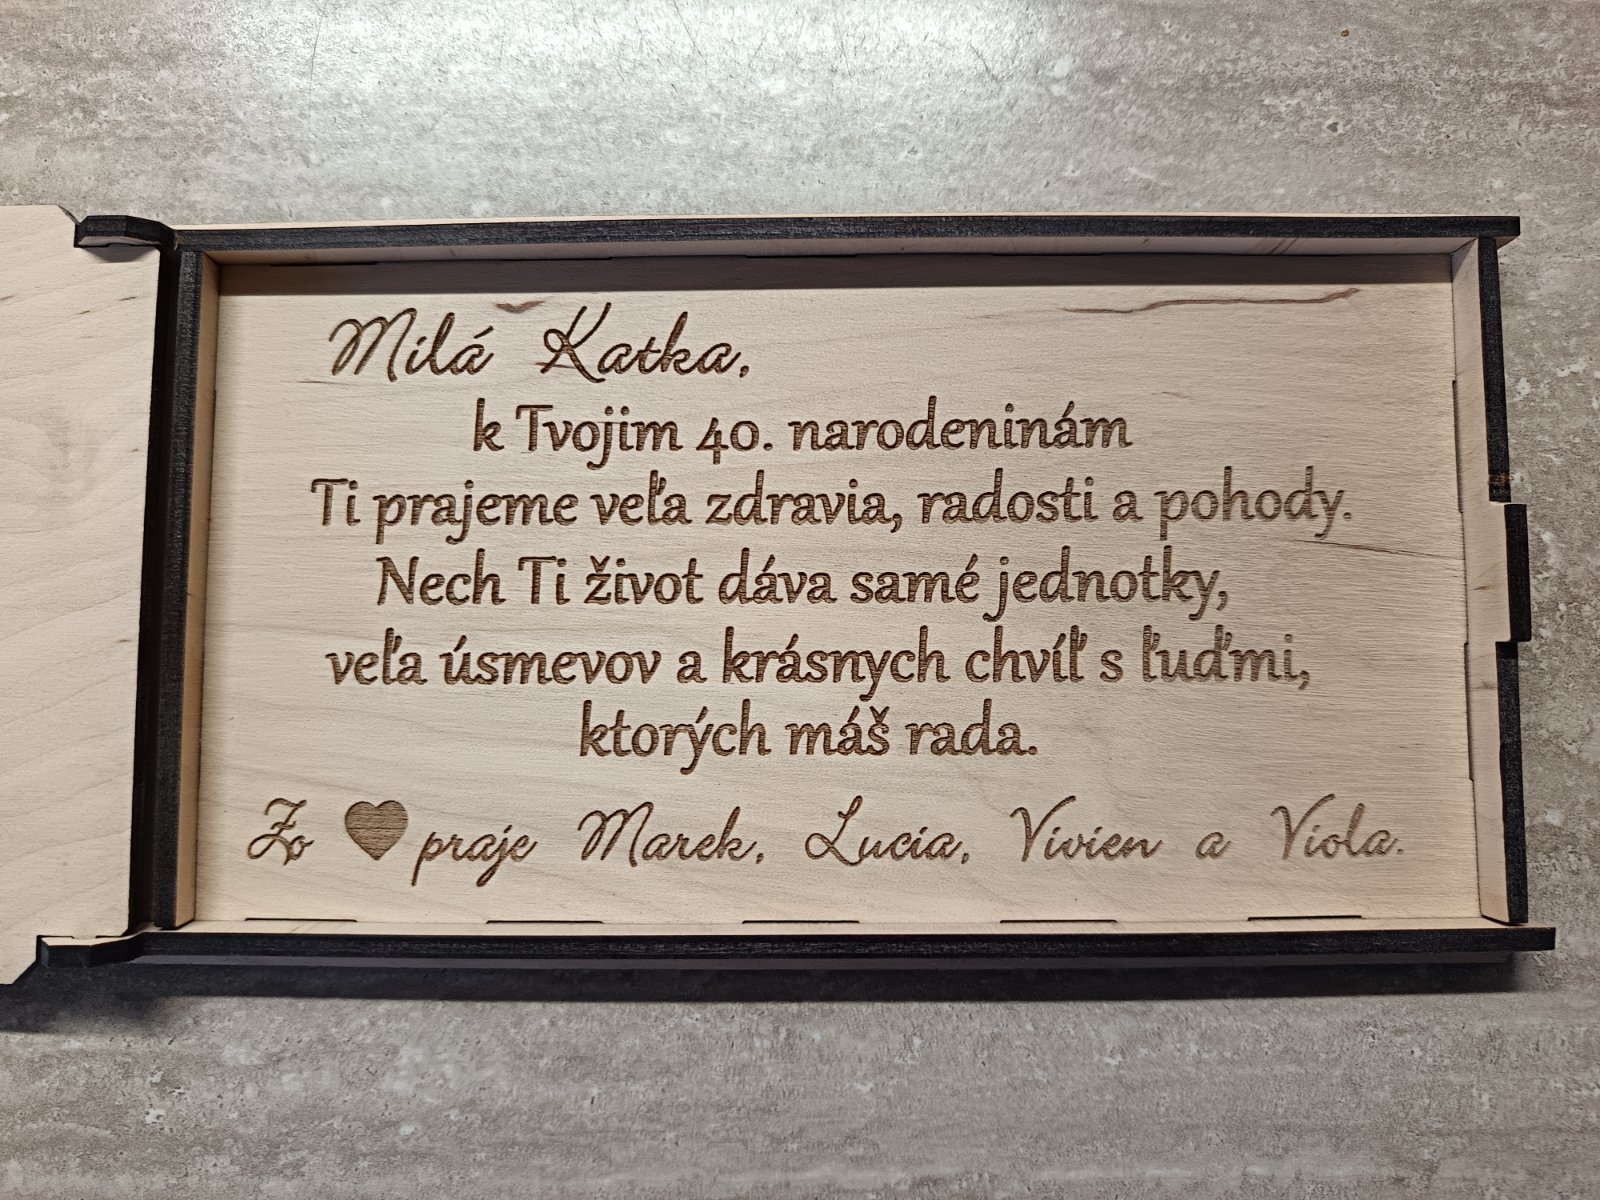 Milá Katka,
k Tvojim 40. narodeninám
Ti prajeme veľa zdravia, radosti a pohody.
Nech Ti život dáva samé jednotky,
veľa úsmevov a krásnych chvíľ s ľuďmi,
ktorých máš rada.
Zo ♥ praje Marek, Lucia, Vivien a Viola.